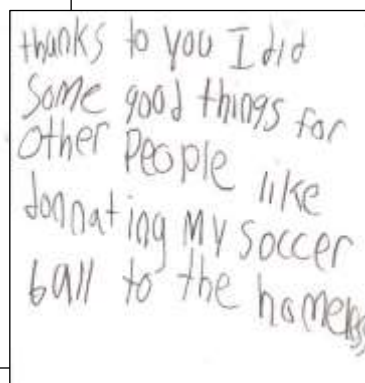 thanks to you I did
Some good things for
Other People like
donnating My soccer
ball to the homeless